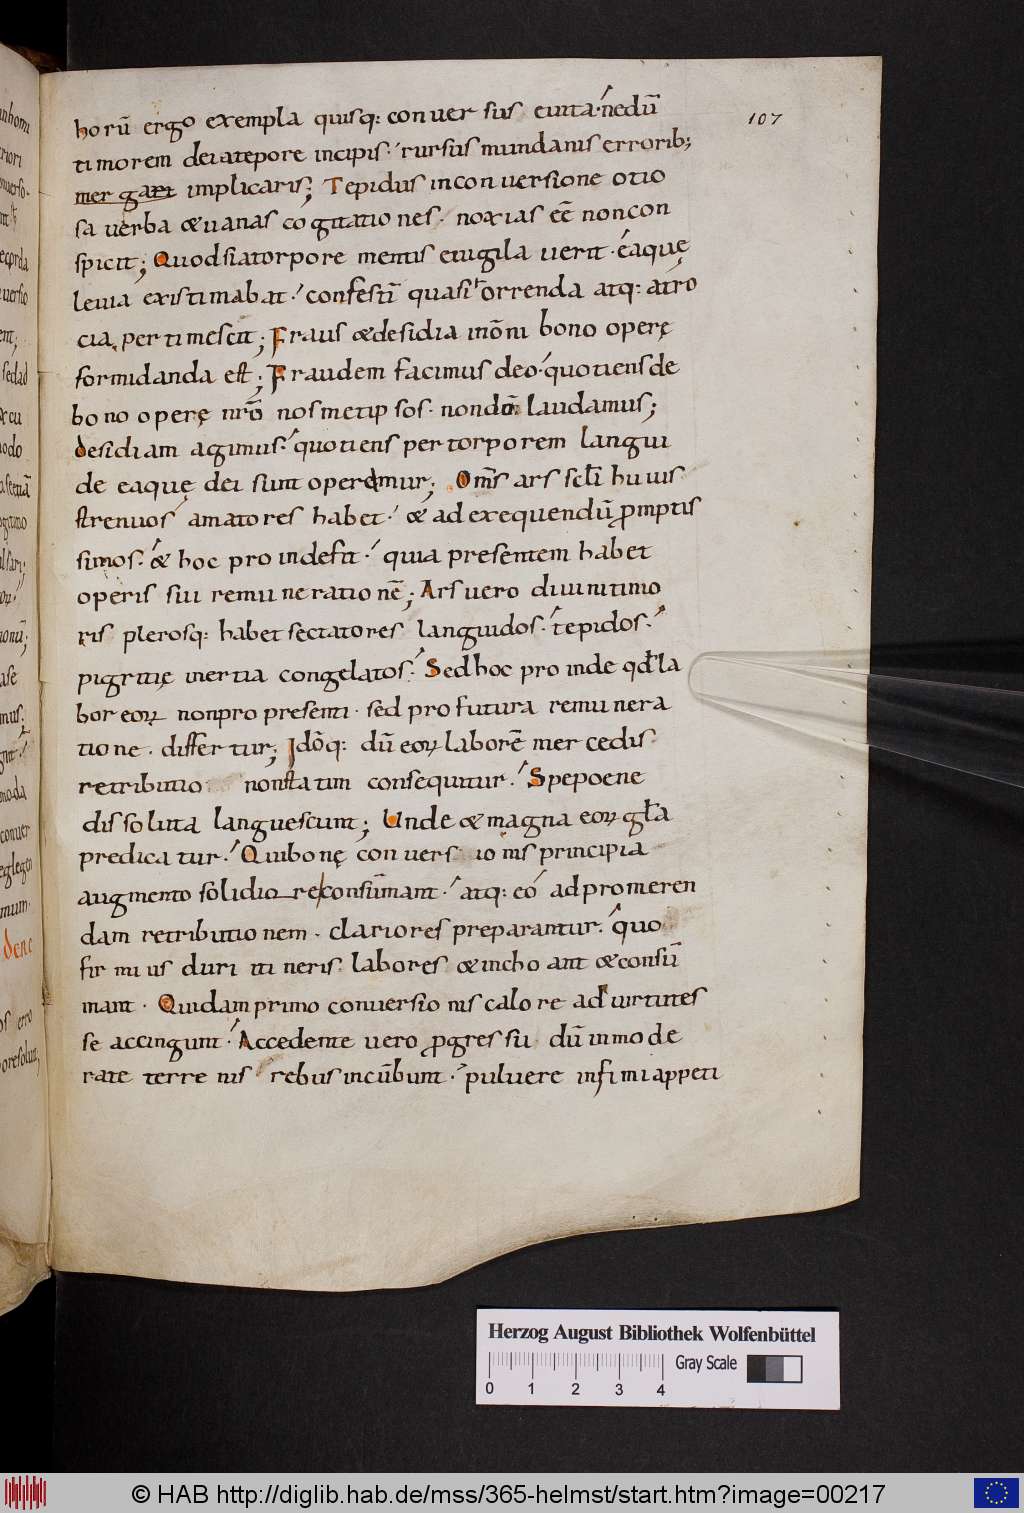 107
horū ergo exempla quisq: conversus evita· nedū
timorem dei atepore incipis· rursus mundanis errorib;
mergari implicaris; Tepidus in conversione otio
sa verba & vanas cogitationes· noxias eē non con
spicit; Quod si a torpore mentis evigilaverit· ea quę
levia existimabat· confestī quasi horrenda atq: atro
cia pertimescit; Fraus & desidia in ōni bono operę
formidanda est; Fraudem facimus deo· quotiens de
bono operę nr̄o nosmetipsos· non dōm laudamus;
desidiam agimus· quotiens per torporem langui
de ea quę dei sunt operamur; Om̄s ars scl̄i huius
strenuos amatores habet· & ad exequendū promptis
simos· & hoc proinde fit· quia presentem habet
operis sui remunerationē; Ars vero divini timo
ris plerosq: habet sectatores languidos· tepidos·
pigritię inertia congelatos· Sed hoc proinde qđ la
bor eoꝝ non pro presenti· sed pro futura remunera
tione· differtur; Idōq: dū eoꝝ laborē mercedis
retributio non statim consequitur· Spe poene
dissoluta languescunt; Unde & magna eoꝝ gl̄a
predicatur· Qui bonę conversionis principia
augmento solidiore consūmant· atq: eo ad promeren
dam retributionem· clariores preparantur· quo
firmius duri itineris labores & inchoant & consū
mant· Quidam primo conversionis calore ad virtutes
se accingunt· Accedente vero progressu dū inmode
rate terrenis rebus incūbunt· pulvere infimi appeti
Herzog August Bibliothek Wolfenbüttel
Gray Scale
0 1 2 3 4
© HAB http://diglib.hab.de/mss/365-helmst/start.htm?image=00217